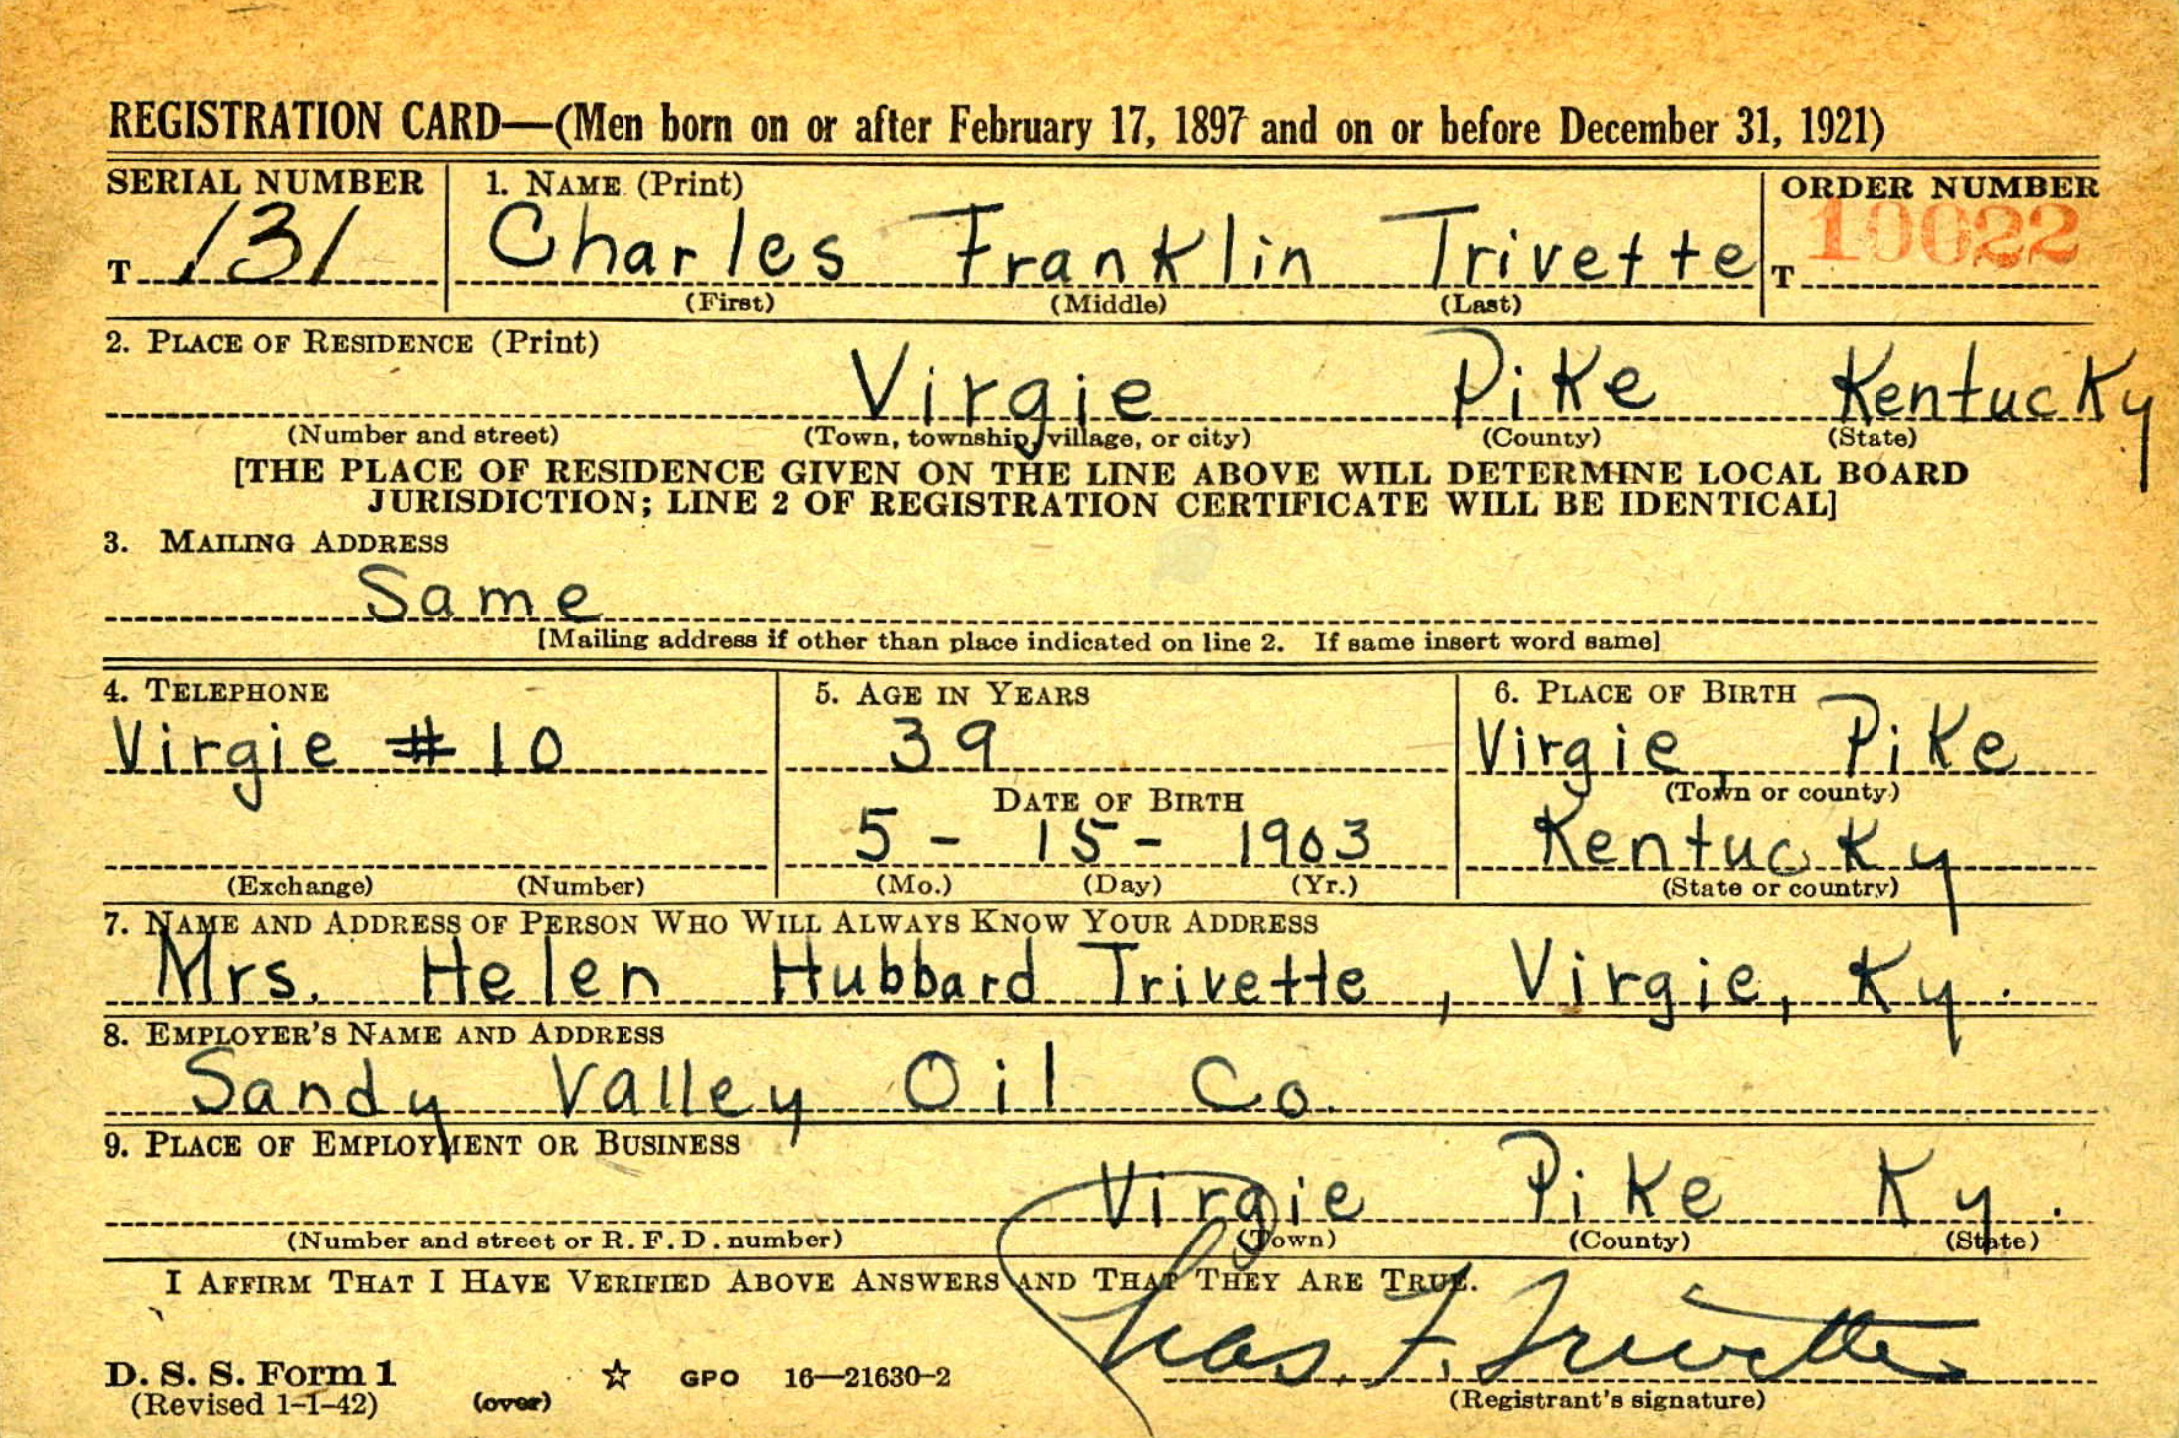 REGISTRATION CARD—(Men born on or after February 17, 1897 and on or before December 31, 1921)
SERIAL NUMBER 1. NAME (Print) ORDER NUMBER
T 131 Charles Franklin Trivette T 10022
(First) (Middle) (Last)
2. PLACE OF RESIDENCE (Print)
Virgie Pike Kentucky
(Number and street) (Town, township, village, or city) (County) (State)
[THE PLACE OF RESIDENCE GIVEN ON THE LINE ABOVE WILL DETERMINE LOCAL BOARD
JURISDICTION; LINE 2 OF REGISTRATION CERTIFICATE WILL BE IDENTICAL]
3. MAILING ADDRESS
Same
[Mailing address if other than place indicated on line 2. If same insert word same]
4. TELEPHONE 5. AGE IN YEARS 6. PLACE OF BIRTH
Virgie #10 39 Virgie, Pike
DATE OF BIRTH (Town or county)
5 - 15 - 1903 Kentucky
(Exchange) (Number) (Mo.) (Day) (Yr.) (State or country)
7. NAME AND ADDRESS OF PERSON WHO WILL ALWAYS KNOW YOUR ADDRESS
Mrs. Helen Hubbard Trivette, Virgie, Ky.
8. EMPLOYER'S NAME AND ADDRESS
Sandy Valley Oil Co.
9. PLACE OF EMPLOYMENT OR BUSINESS
Virgie Pike Ky.
(Number and street or R. F. D. number) (Town) (County) (State)
I AFFIRM THAT I HAVE VERIFIED ABOVE ANSWERS AND THAT THEY ARE TRUE.
Chas. F. Trivette
D. S. S. Form 1 ☆ GPO 16—21630-2
(Revised 1-1-42) (over) (Registrant's signature)